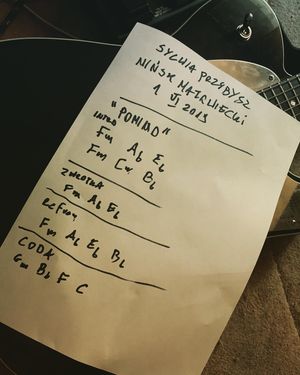 SYLWIA PRZYBYSZ
MIŃSK MAZOWIECKI
1 VI 2019
"POMIMO"
INTRO
Fm Ab Eb
Fm Cm Bb
ZWROTKA
Fm Ab Eb
REFREN
Fm Ab Eb Bb
CODA
Gm Bb F C